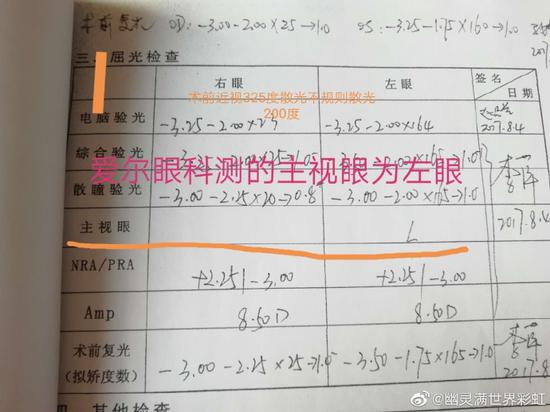 术前复光 OD: -3.00-2.00×25→1.0 OS: -3.25-1.75×160→1.0
三、屈光检查
右眼 左眼 签名 日期
术前近视325度散光不规则散光
200度
电脑验光 -3.25-2.00×23 -3.25-2.00×164 2017.8.4
综合验光
爱尔眼科测的主视眼为左眼
散瞳验光 -3.00-2.25×20→0.8 -3.00-2.00×165→1.0
主视眼 L 2017.8.4
NRA/PRA +2.25/-3.00 +2.25/-3.00
Amp 8.50D 8.50D
术前复光
(拟矫度数) -3.00-2.25×25→1.0 -3.50-1.75×165→1.0 2017.8.4
四、其他检查
@幽灵满世界彩虹